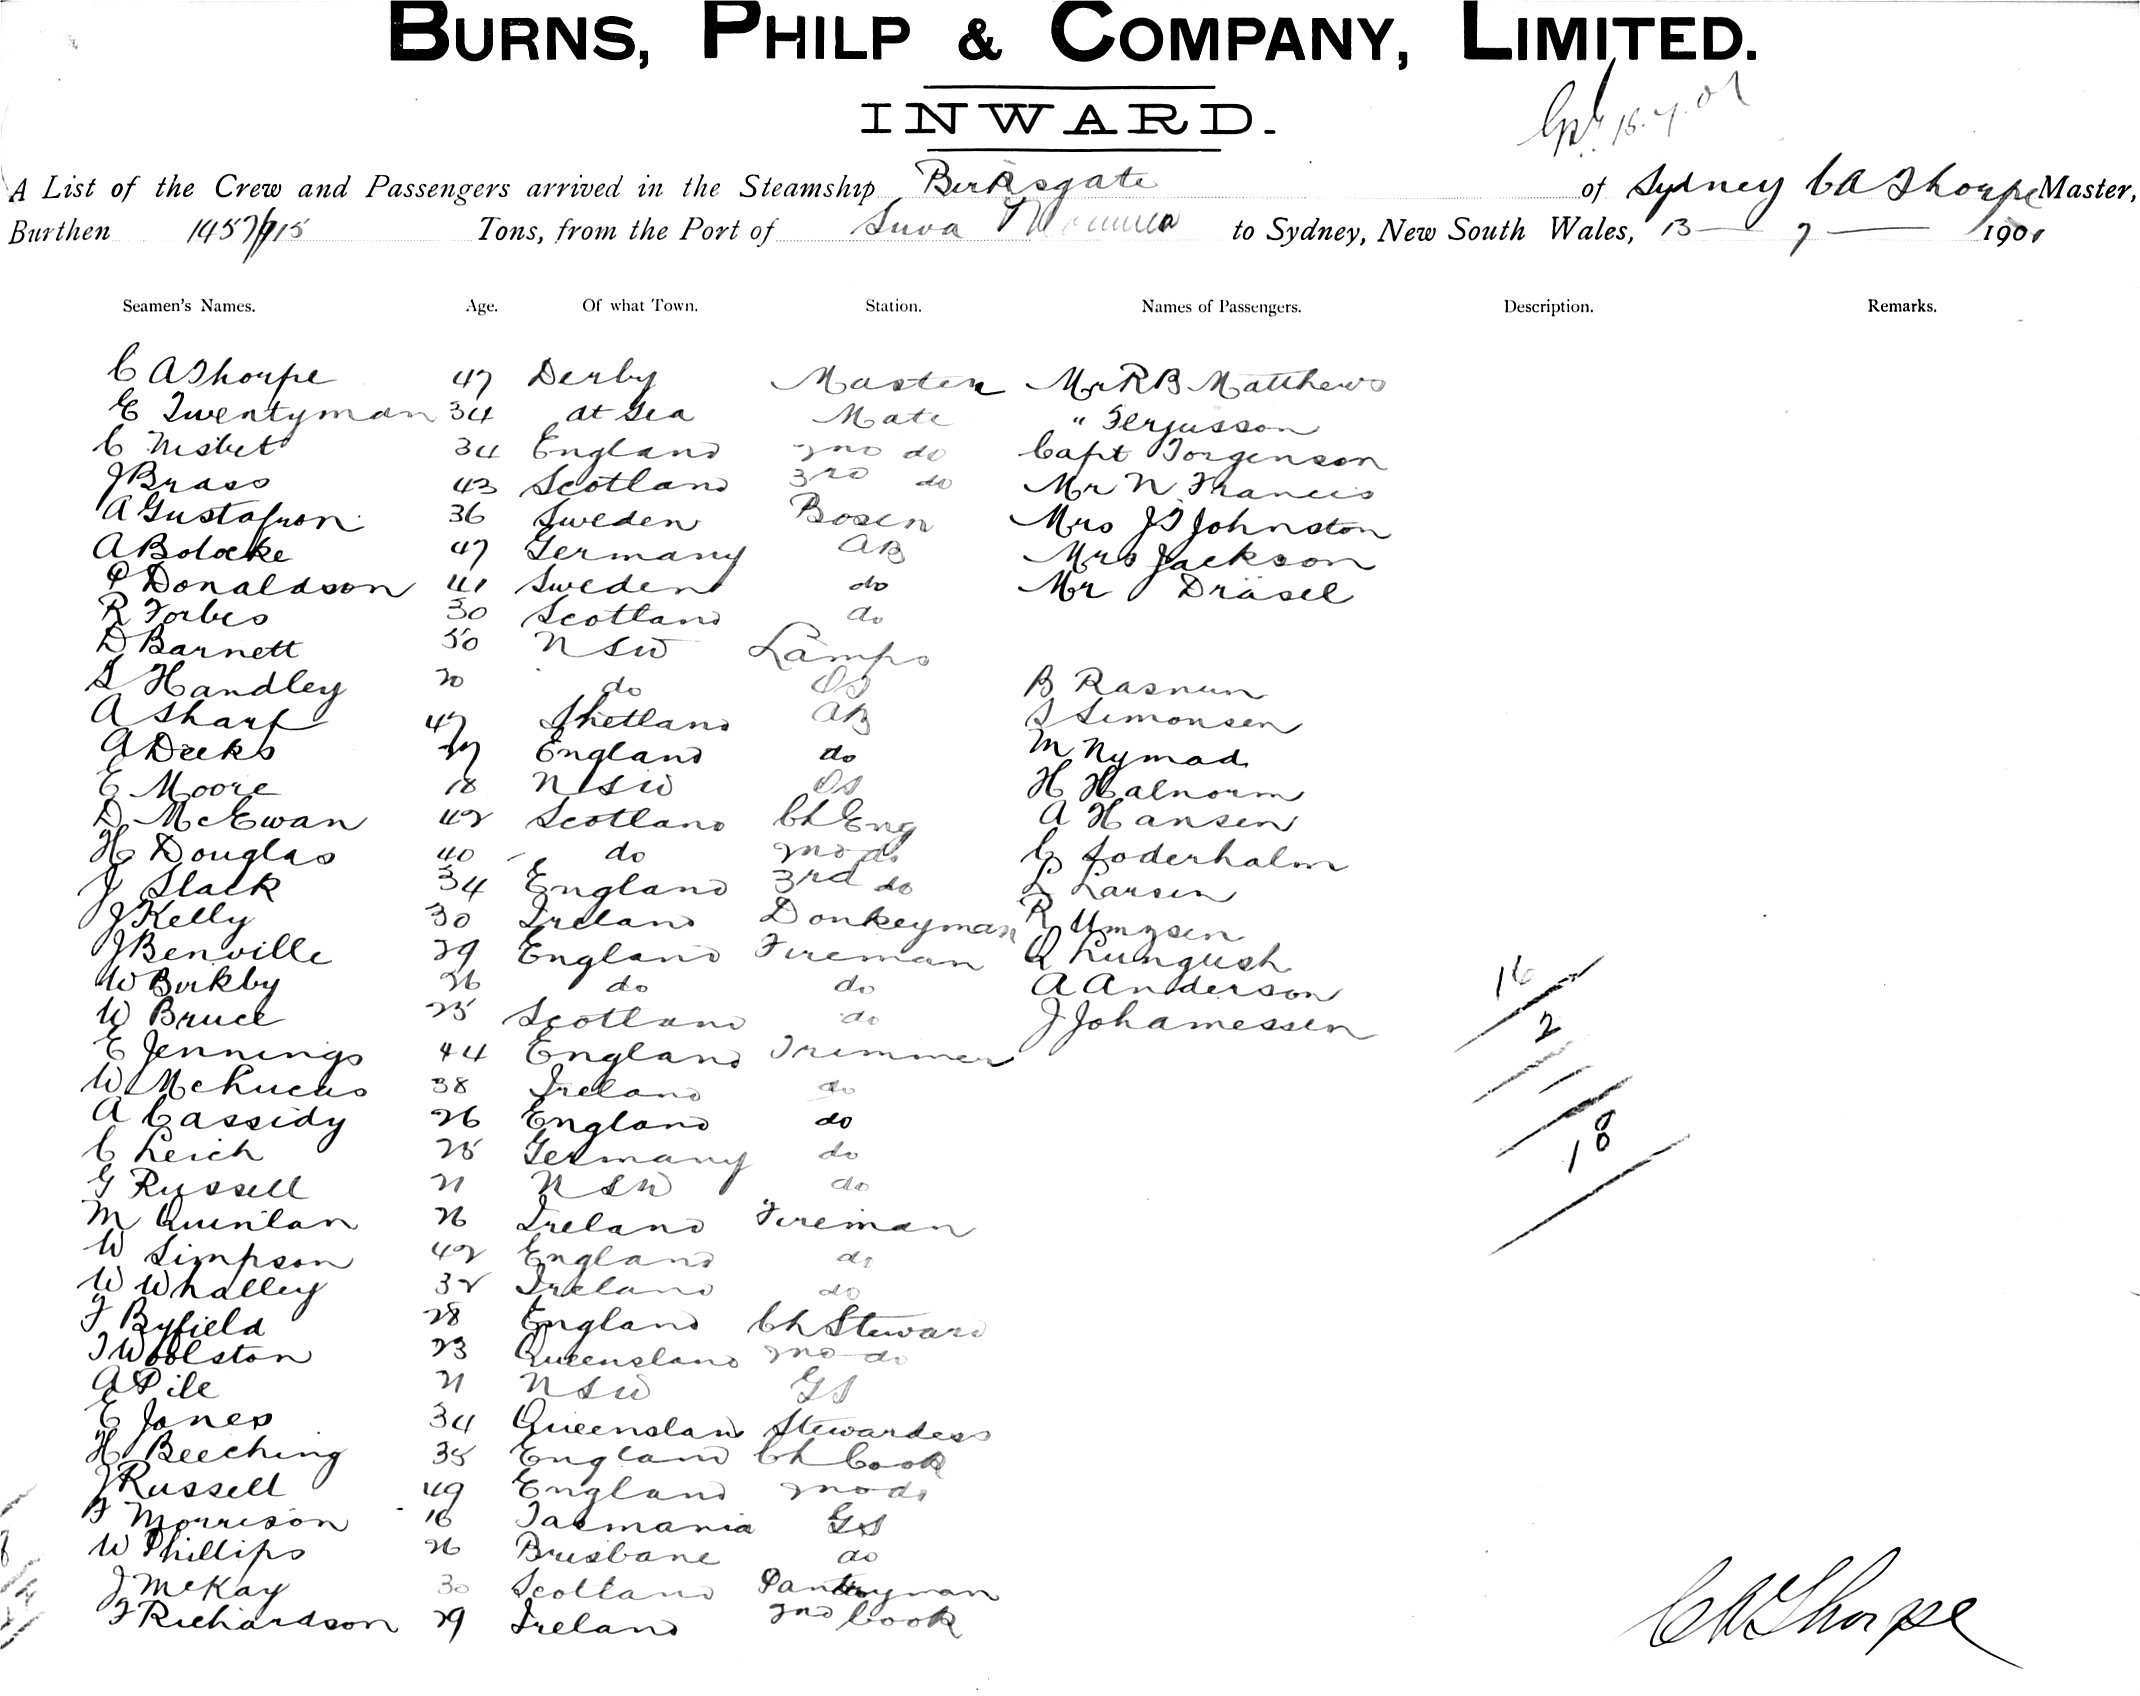 BURNS, PHILP & COMPANY, LIMITED.
INWARD.
A List of the Crew and Passengers arrived in the Steamship Birksgate of Sydney C A Thorpe Master,
Burthen 1457/15 Tons, from the Port of Suva Noumea to Sydney, New South Wales, 13 — 7 — 1901
Seamen's Names. Age. Of what Town. Station. Names of Passengers. Description. Remarks.
C A Thorpe 47 Derby Master Mr R B Matthews
E Twentyman 34 at Sea Mate " Fergusson
C Nisbet 34 England 2nd do Capt Jorgenson
J Brass 43 Scotland 3rd do Mr N Francis
A Gustafson 36 Sweden Bosen Mrs J T Johnston
A Bolocke 47 Germany AB Mrs Jackson
P Donaldson 41 Sweden do Mr Dräsel
R Forbes 30 Scotland do
D Barnett 50 NSW Lamps
S Handley 20 do OS B Rasnun
A Sharp 47 Shetland AB S Simonsen
A Deeks 27 England do M Nymad
E Moore 18 NSW OS H Halnorm
D McEwan 42 Scotland Ch Eng A Hansen
H Douglas 40 do 2nd do C Soderhalm
J Slack 34 England 3rd do L Larsen
J Kelly 30 Ireland Donkeyman R Umzsen
J Benville 29 England Fireman Q Lungush
W Birkby 26 do do A Anderson
W Bruce 25 Scotland do J Johamessen
E Jennings 44 England Trimmer
W McLucas 38 Ireland do
A Cassidy 26 England do
C Leich 25 Germany do
G Russell 21 NSW do
M Quinlan 26 Ireland Fireman
W Simpson 42 England do
W Whalley 32 Ireland do
F Byfield 28 England Ch Steward
T Woolston 23 Queensland 2nd do
A Pile 21 NSW GS
E Jones 34 Queenslan Stewardess
H Beeching 35 England Ch Cook
J Russell 49 England 2nd do
F Morrison 16 Tasmania GS
W Phillips 26 Brisbane do
J McKay 30 Scotland Pantryman
F Richardson 29 Ireland 2nd Cook
16
2
18
C A Thorpe